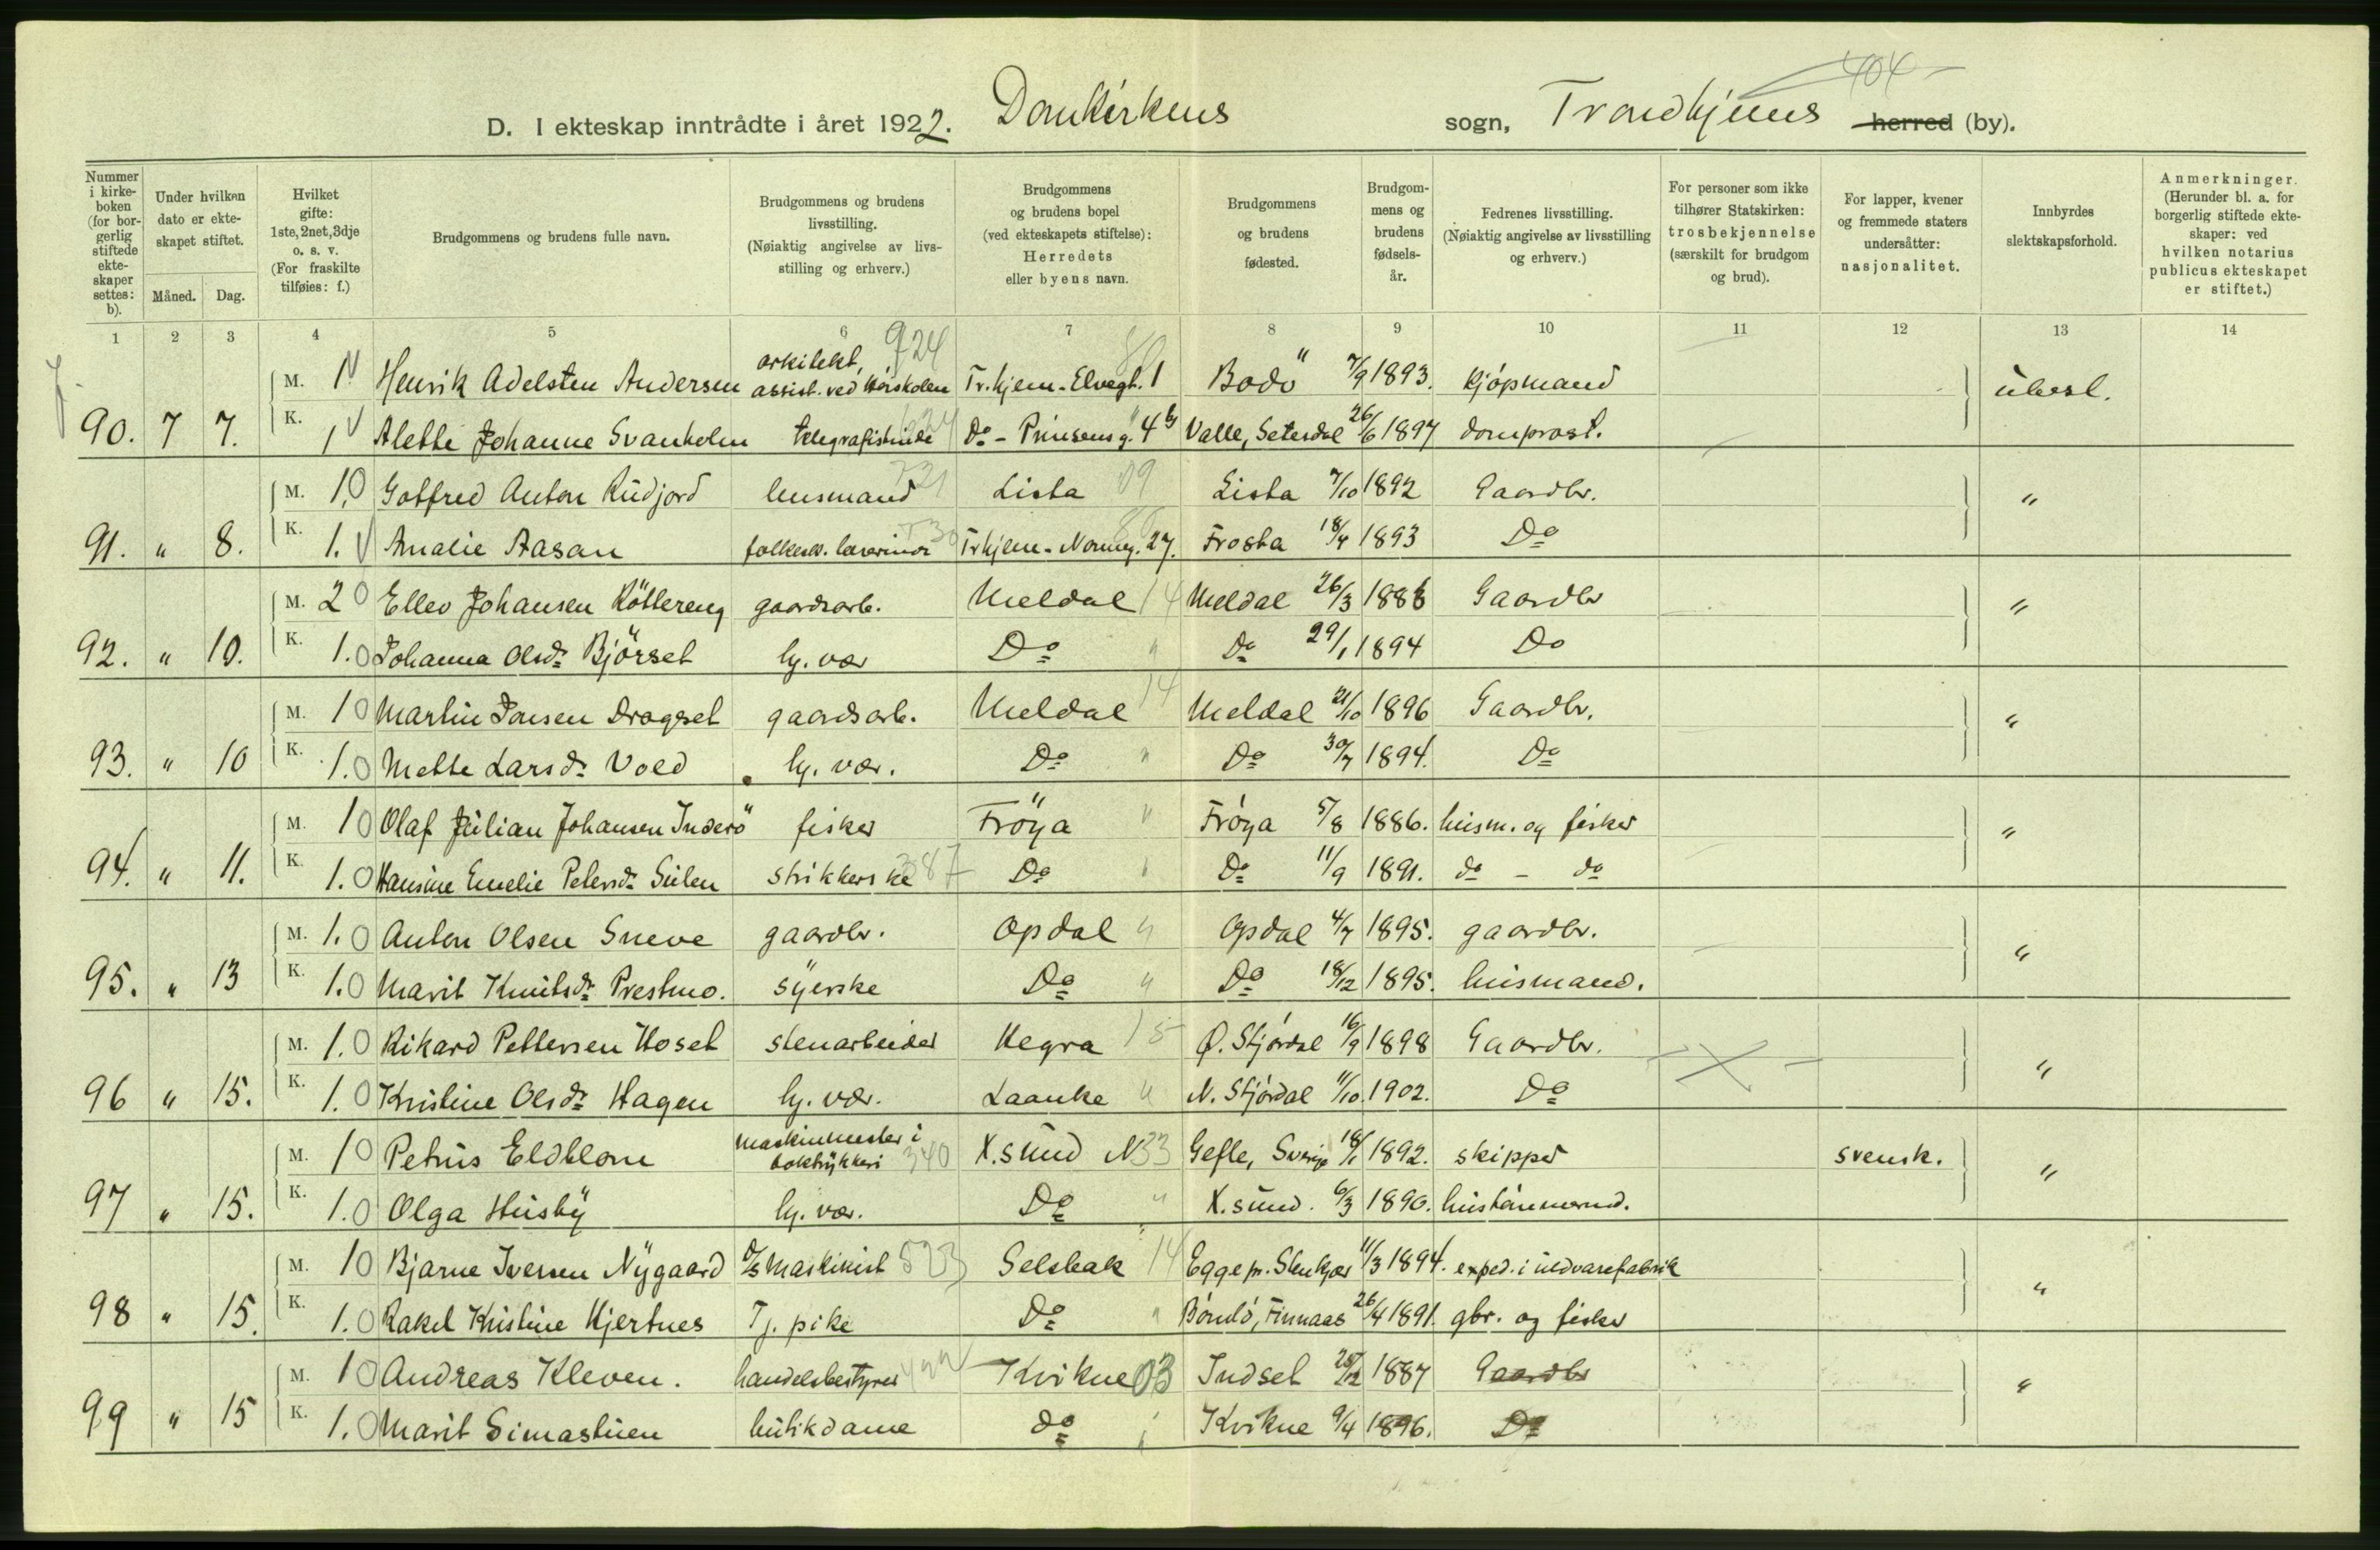 404
D. I ekteskap inntrådte i året 1922. Domkirkens sogn, Trondhjems herred (by).
Nummer i kirkeboken (for borgerlig stiftede ekteskaper settes: b).
Under hvilken dato er ekteskapet stiftet.
Måned. Dag.
Hvilket gifte: 1ste, 2net, 3dje o. s. v. (For fraskilte tilføies: f.)
Brudgommens og brudens fulle navn.
Brudgommens og brudens livsstilling. (Nøiaktig angivelse av livsstilling og erhverv.)
Brudgommens og brudens bopel (ved ekteskapets stiftelse): Herredets eller byens navn.
Brudgommens og brudens fødested.
Brudgommens og brudens fødselsår.
Fedrenes livsstilling. (Nøiaktig angivelse av livsstilling og erhverv.)
For personer som ikke tilhører Statskirken: trosbekjennelse (særskilt for brudgom og brud).
For lapper, kvener og fremmede staters undersåtter: nasjonalitet.
Innbyrdes slektskapsforhold.
Anmerkninger. (Herunder bl. a. for borgerlig stiftede ekteskaper: ved hvilken notarius publicus ekteskapet er stiftet.)
1 2 3 4 5 6 7 8 9 10 11 12 13 14
M. 1 Henrik Adelsten Andersen arkitekt, assist. ved Høiskolen 924 Tr.hjem - Elvegt. 1 Bodö 7/9 1893. kjøpmand ubesl.
90. 7 7. K. 1 Alette Johanne Svanholm telegrafistinde Do - Prinsens g. 4b Valle, Setesdal 26/6 1897 domprost.
M. 1.0 Gotfred Anton Rudjord lensmand Lista 09 Lista 7/10 1892 Gaardbr. "
91. " 8. K. 1. Amalie Aasan folkesk. lærerinde Trhjem - Nonneg. 27. Frosta 18/4 1893 Do
M. 2 0 Ellev Johansen Röttereng gaardsarb. Meldal 14 Meldal 26/3 1886 Gaardbr "
92. " 10. K. 1.0 Johanna Olsdr Björset hj. vær Do " Do 29/1 1894 Do
M. 1 0 Martin Jonsen Dragset gaardsarb. Meldal 14 Meldal 21/10 1896 Gaardbr. "
93. " 10 K. 1.0 Mette Larsdr Vold hj. vær. Do " Do 30/7 1894. Do
M. 1 0 Olaf Julian Johansen Inderö fisker Fröya " Fröya 5/8 1886. husm. og fisker "
94. " 11. K. 1.0 Hansine Emelie Petersdr Sulen strikkerske 387 Do Do 11/9 1891. do - do
M. 1.0 Anton Olsen Sneve gaardbr. Opdal " Opdal 4/7 1895. gaardbr. "
95. " 13 K. 1.0 Marit Knutsdr Prestmo. syerske Do " Do 18/12 1895. husmand.
M. 1.0 Rikard Pettersen Hoset stenarbeider Hegra 15 Ø. Stjørdal 16/9 1898 Gaardbr. "
96 " 15. K. 1.0 Kristine Olsdr Hagen hj. vær. Laanke " N. Stjørdal 11/10 1902. Do
M. 1 0 Petrus Eldblom maskinmester i boktrykkeri 340 X.sund N33 Gefle, Sverige 18/1 1892. skipper svensk. "
97 " 15. K. 1.0 Olga Husby hj. vær. Do " X.sund. 6/3 1890. hustømmermd.
M. 1 0 Bjarne Iversen Nygaard D/S maskinist 523 Selsbak 14 Egge pr. Stenkjær 11/3 1894. exped. i uldvarefabrik "
98 " 15. K. 1.0 Rakel Kristine Hjertnes Tj. pike Do " Bömlö, Finnaas 26/4 1891. gbr. og fisker
M. 1 0 Andreas Kleven. handelsbestyrer Kvikne 03 Indset 25/12 1887 Gaardbr "
99 " 15 K. 1.0 Marit Simastuen butikdame do Kvikne 9/4 1896. Do